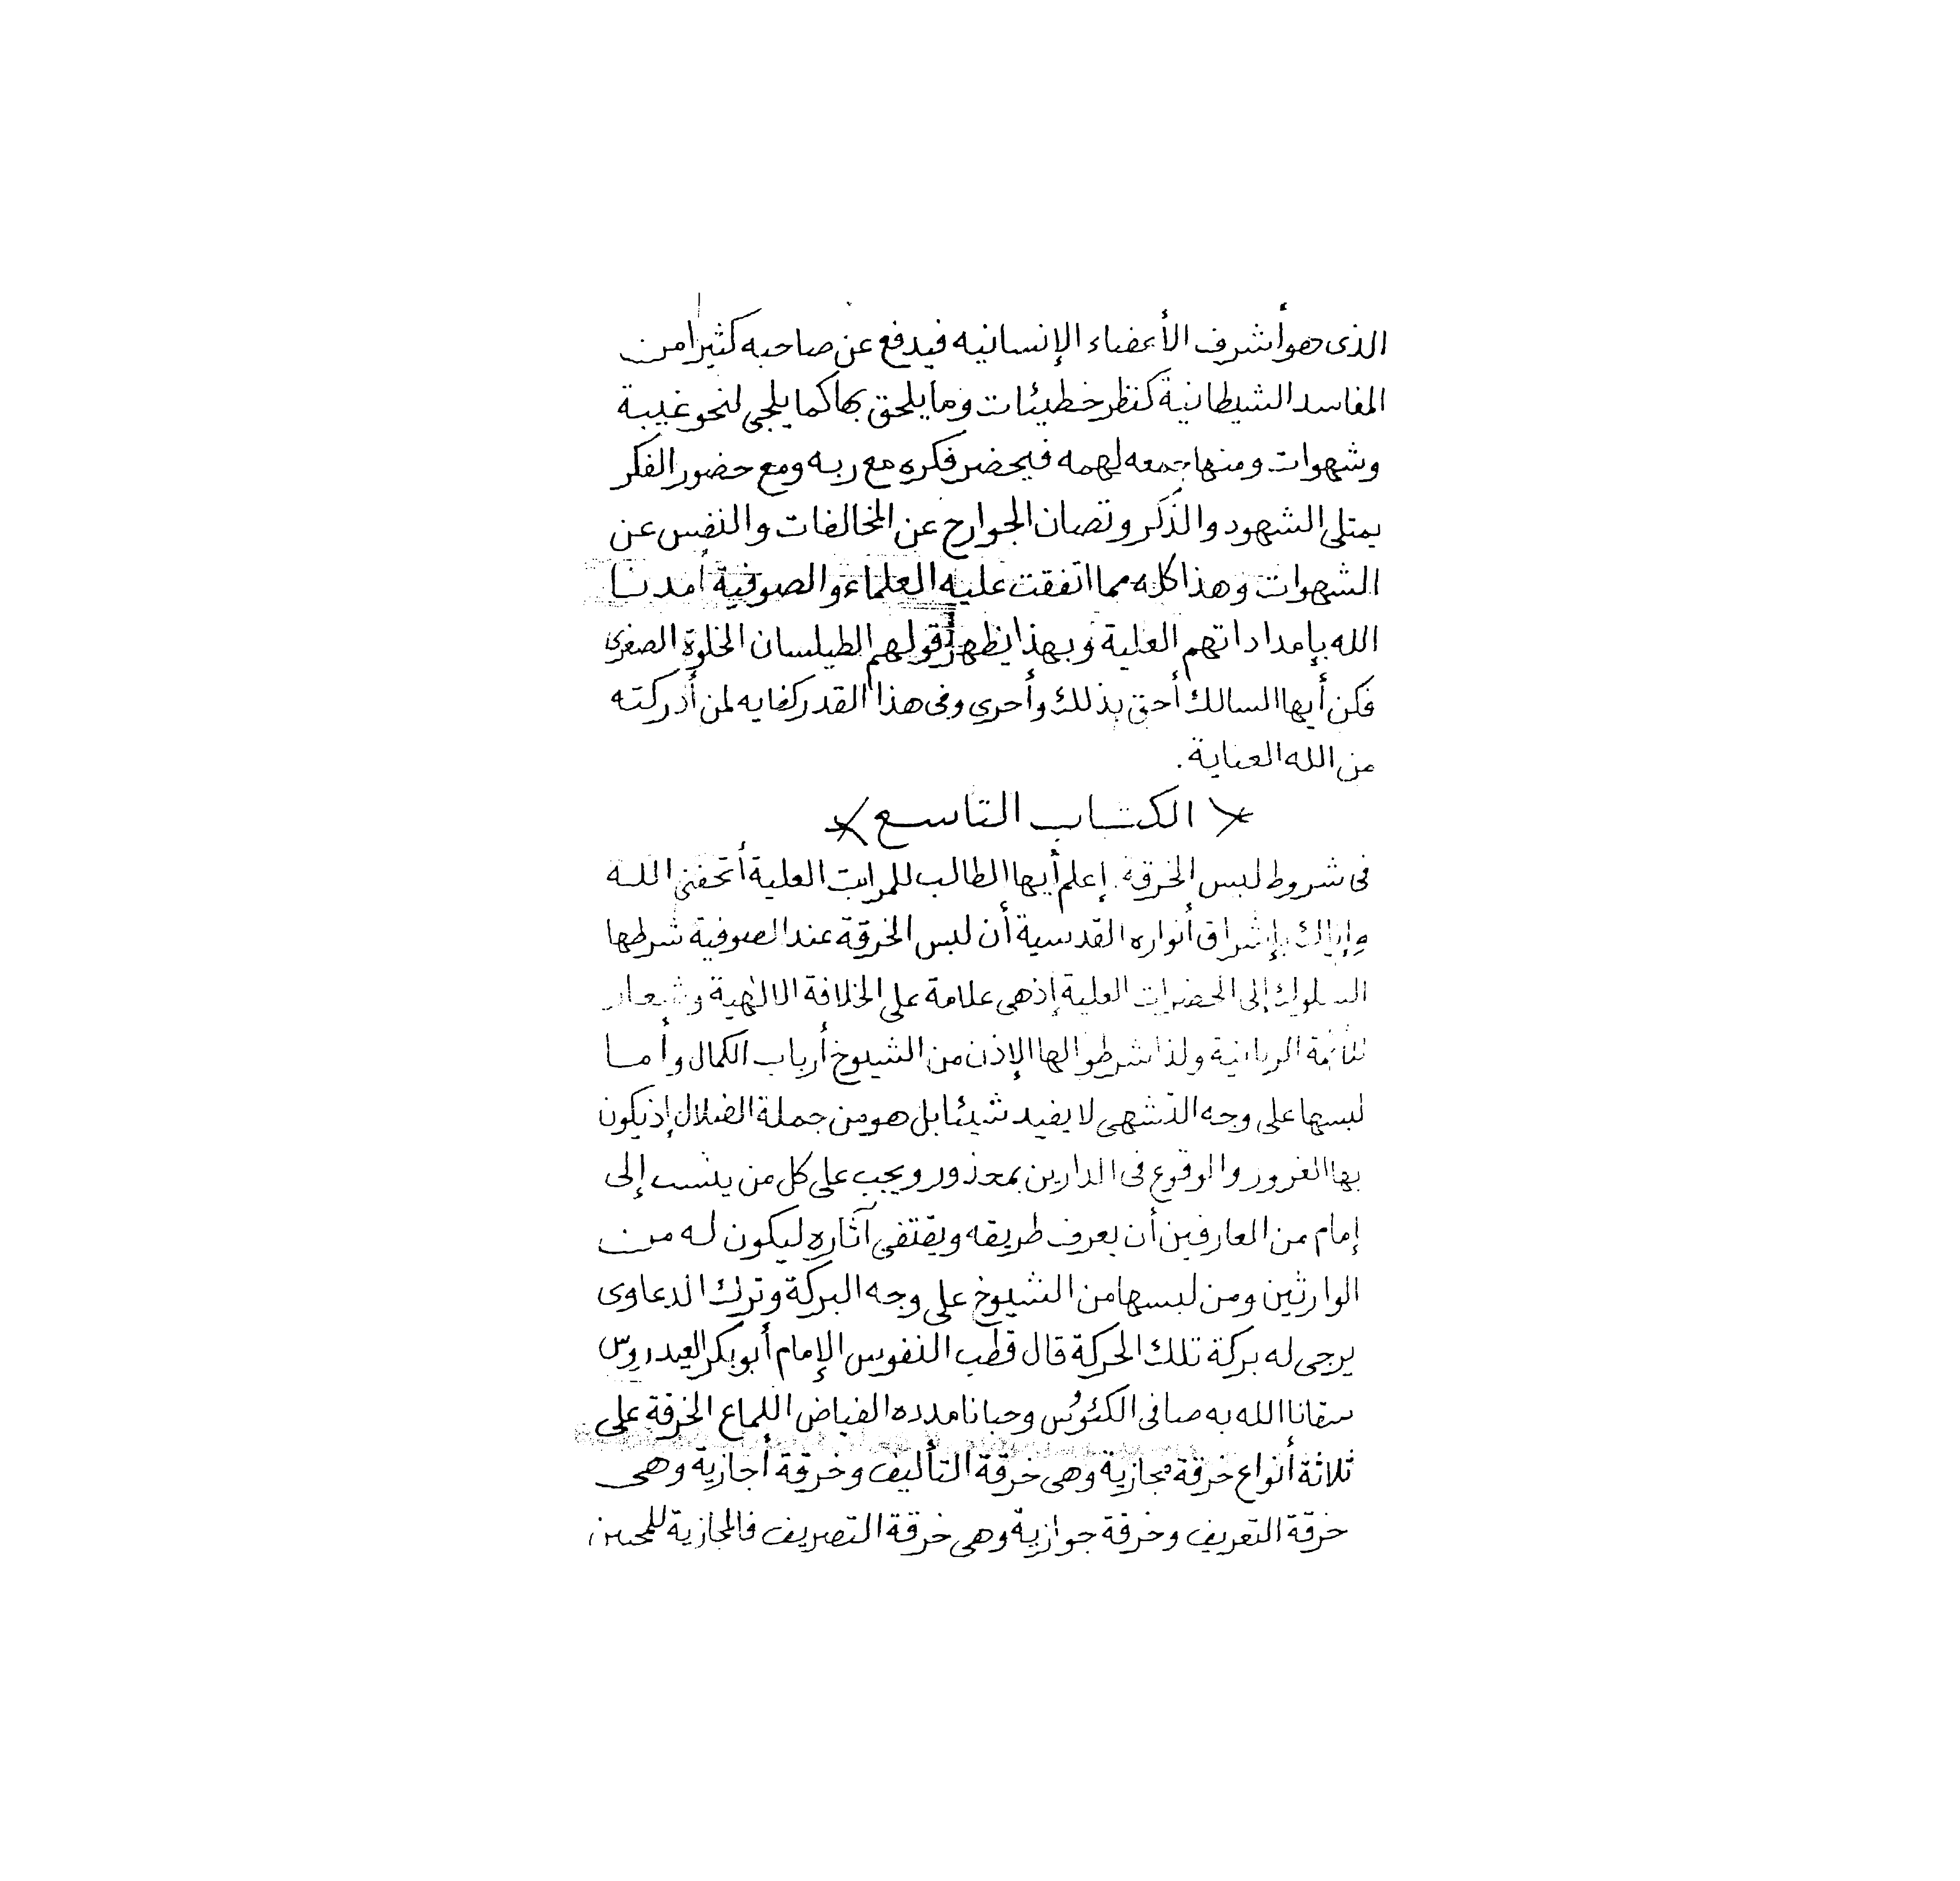 الذى هو أشرف الأعضاء الإنسانيه فيدفع عن صاحبه كثيرا من
المفاسد الشيطانية كنظر خطيئات وما يلحق بها كما يلجى لنحو غيبة
وشهوات ومنها جمعه لهمه فيحضر فكره مع ربه ومع حضور الفكر
يمتلى الشهود والذكر وتصان الجوارح عن المخالفات والنفس عن
الشهوات وهذا كله مما اتفقت عليه العلماء والصوفية أمدنا
الله بإمداداتهم العلية وبهذا يظهر قولهم الطيلسان الخلوة الصغرى
فكن أيها السالك أحق بذلك وأحرى وفى هذا القدر كفايه لمن أدركته
من الله العناية .
* الكتاب التاسع *
فى شروط لبس الخرقة . إعلم أيها الطالب للمراتب العلية أتحفنى الله
وإياك بإشراق أنواره القدسية أن لبس الخرقة عند الصوفية شرطها
السلوك إلى الحضرات العلية إذ هى علامة على الخلافة الالهية وشعار
للأئمة الربانية ولذا شرطوا لها الإذن من الشيوخ أرباب الكمال وأما
لبسها على وجه التشهى لا يفيد شيئا بل هو من جملة الضلال إذ يكون
بها الغرور والوقوع فى الدارين بمحذور ويجب على كل من ينتسب إلى
إمام من العارفين أن يعرف طريقه ويقتفى آثاره ليكون له من
الوارثين ومن لبسها من الشيوخ على وجه البركة وترك الدعاوى
يرجى له بركة تلك الحركة قال قطب النفوس الإمام أبو بكر العيدروس
سقانا الله به صافى الكئوُس وحبانا مدده الفياض اللماع الخرقة على
ثلاثة أنواع خرقة مجازية وهى خرقة التأليف وخرقة أجازية وهى
خرقة التعريف وخرقة جوازية وهى خرقة التصريف فالمجازية للمحبين